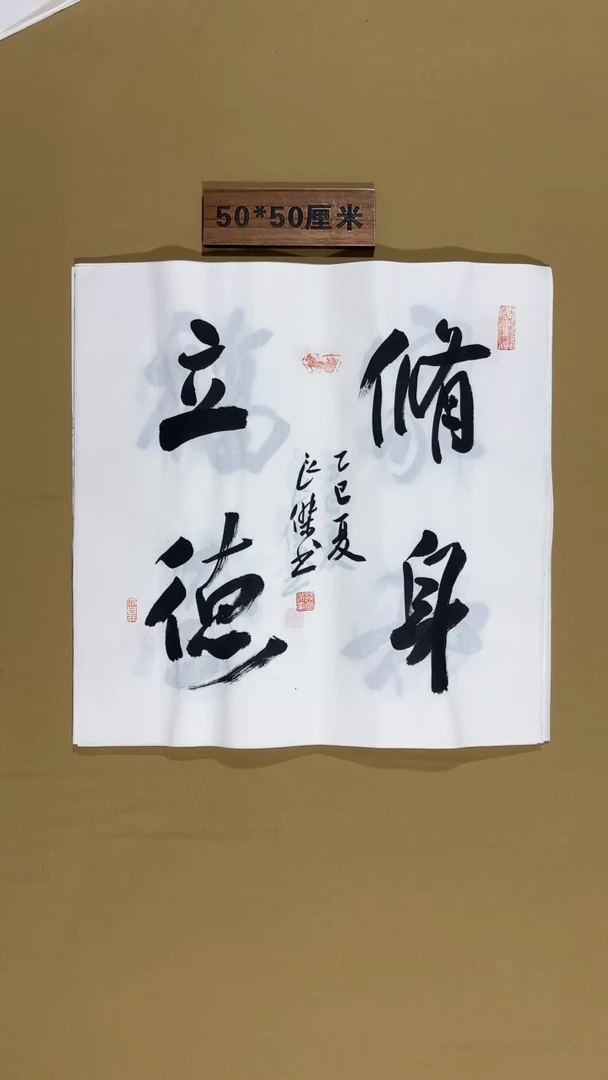 50*50厘米
脩身
立德
乙巳夏
良傑书